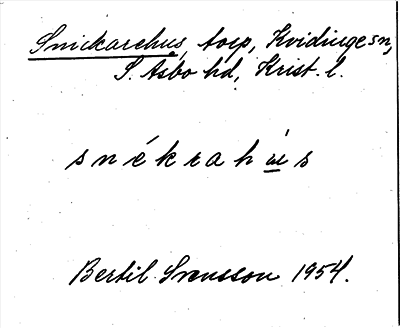 Snickarehus, torp, Kvidinge sn,
S. Åsbo hd, Krist. l.
snékrahu̲̇s
Bertil Svensson 1954.